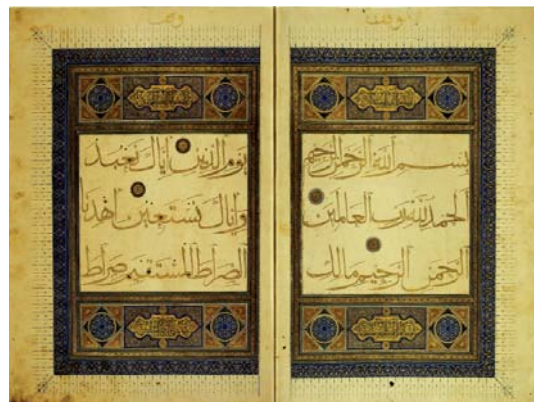 بسم الله الرحمن الرحيم
الحمد لله رب العالمين
الرحمن الرحيم مالك
يوم الدين اياك نعبد
واياك نستعين اهدنا
الصراط المستقيم صراط